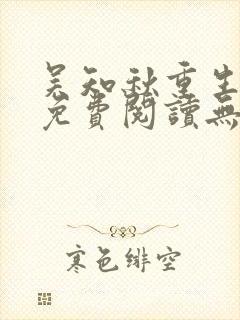 吴知秋重生
免費閱讀無
寒色緋空